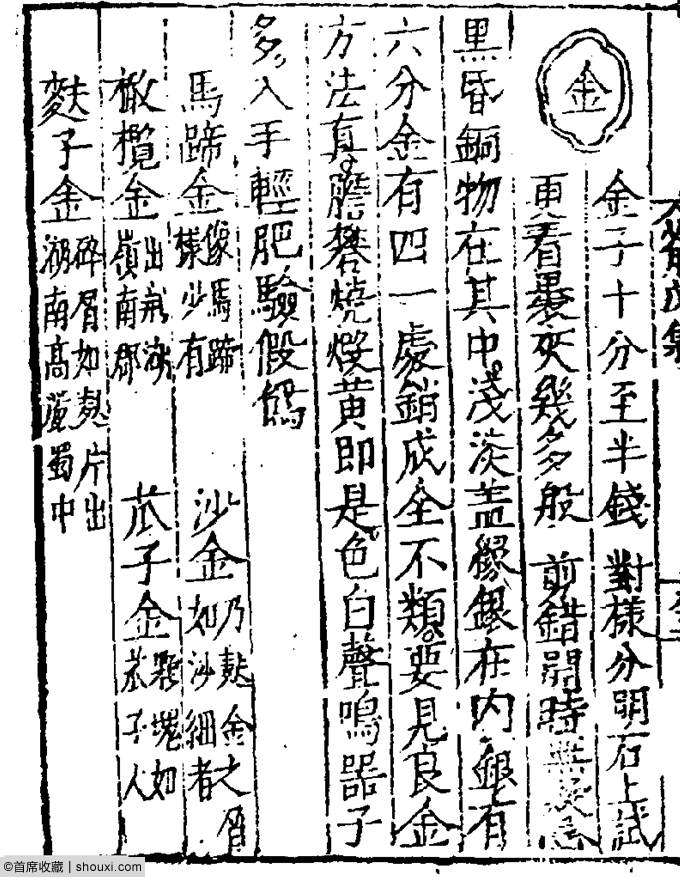 戊集
金
金子十分至半錢 對樣分明石上試
更看裹夾幾多般 剪錯開時無疑
黑昏銅物在其中淺淡蓋緣銀在内銀有
六分金有四一處銷成全不類要見良金
方法真膽礬燒焌黄即是色白聲鳴器子
多入手輕肥驗假偽
馬蹄金 像馬蹄
樣少有
沙金 乃麩金之屑
如沙細者
橄欖金 出荊湖
嶺南郡
苽子金 顆塊如
苽子人
麩子金 碎屑如麩片出
湖南高蜀中
©首席收藏 | shouxi.com